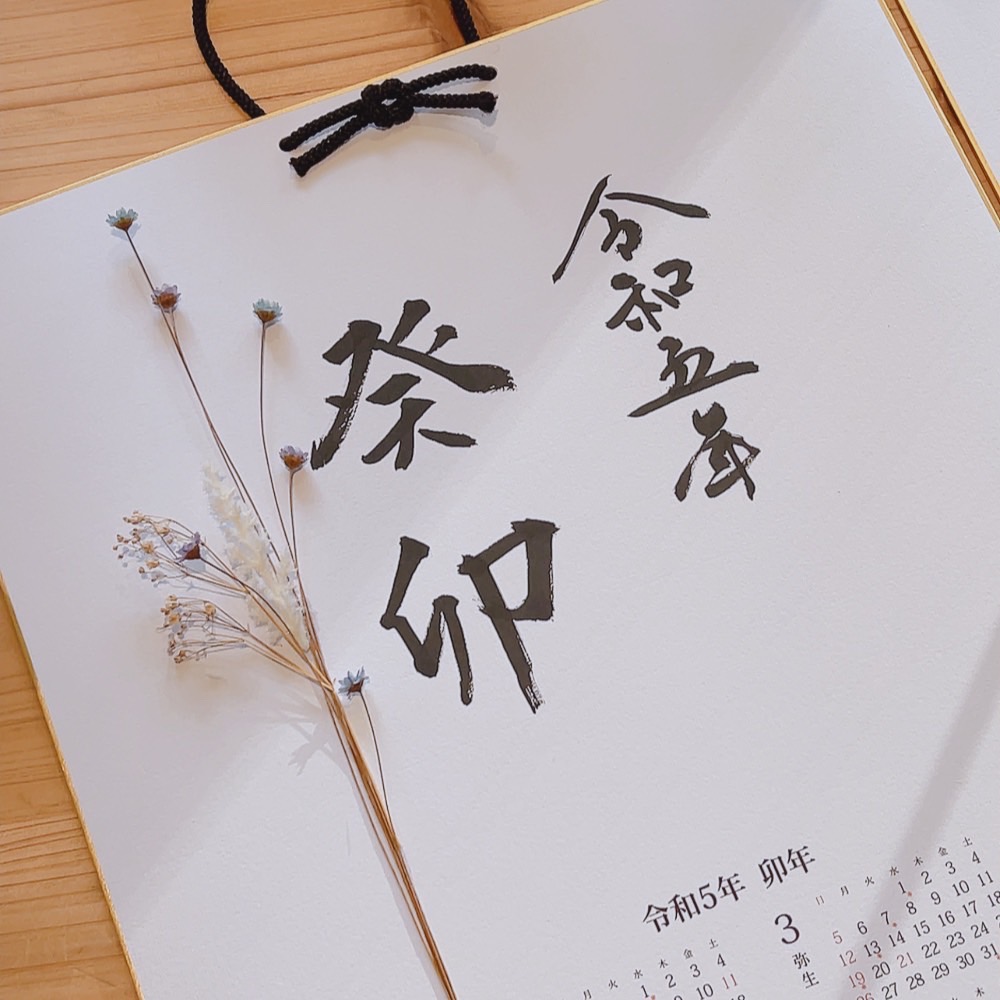 令和五年
癸卯
令和5年 卯年
月 火 水 木 金 土
1 2 3 4
9 10 11
18
3
弥生
日 月 火 水 木 金 土
1 2 3 4
5 6 7 8 9 10 11
12 13 14 15 16 17 18
19 20 21 22 23 24
26 27 28 29 30 31
木